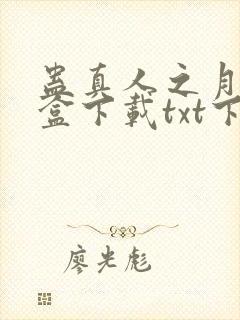 蛊真人之月
盒下载txt下
廖光彪